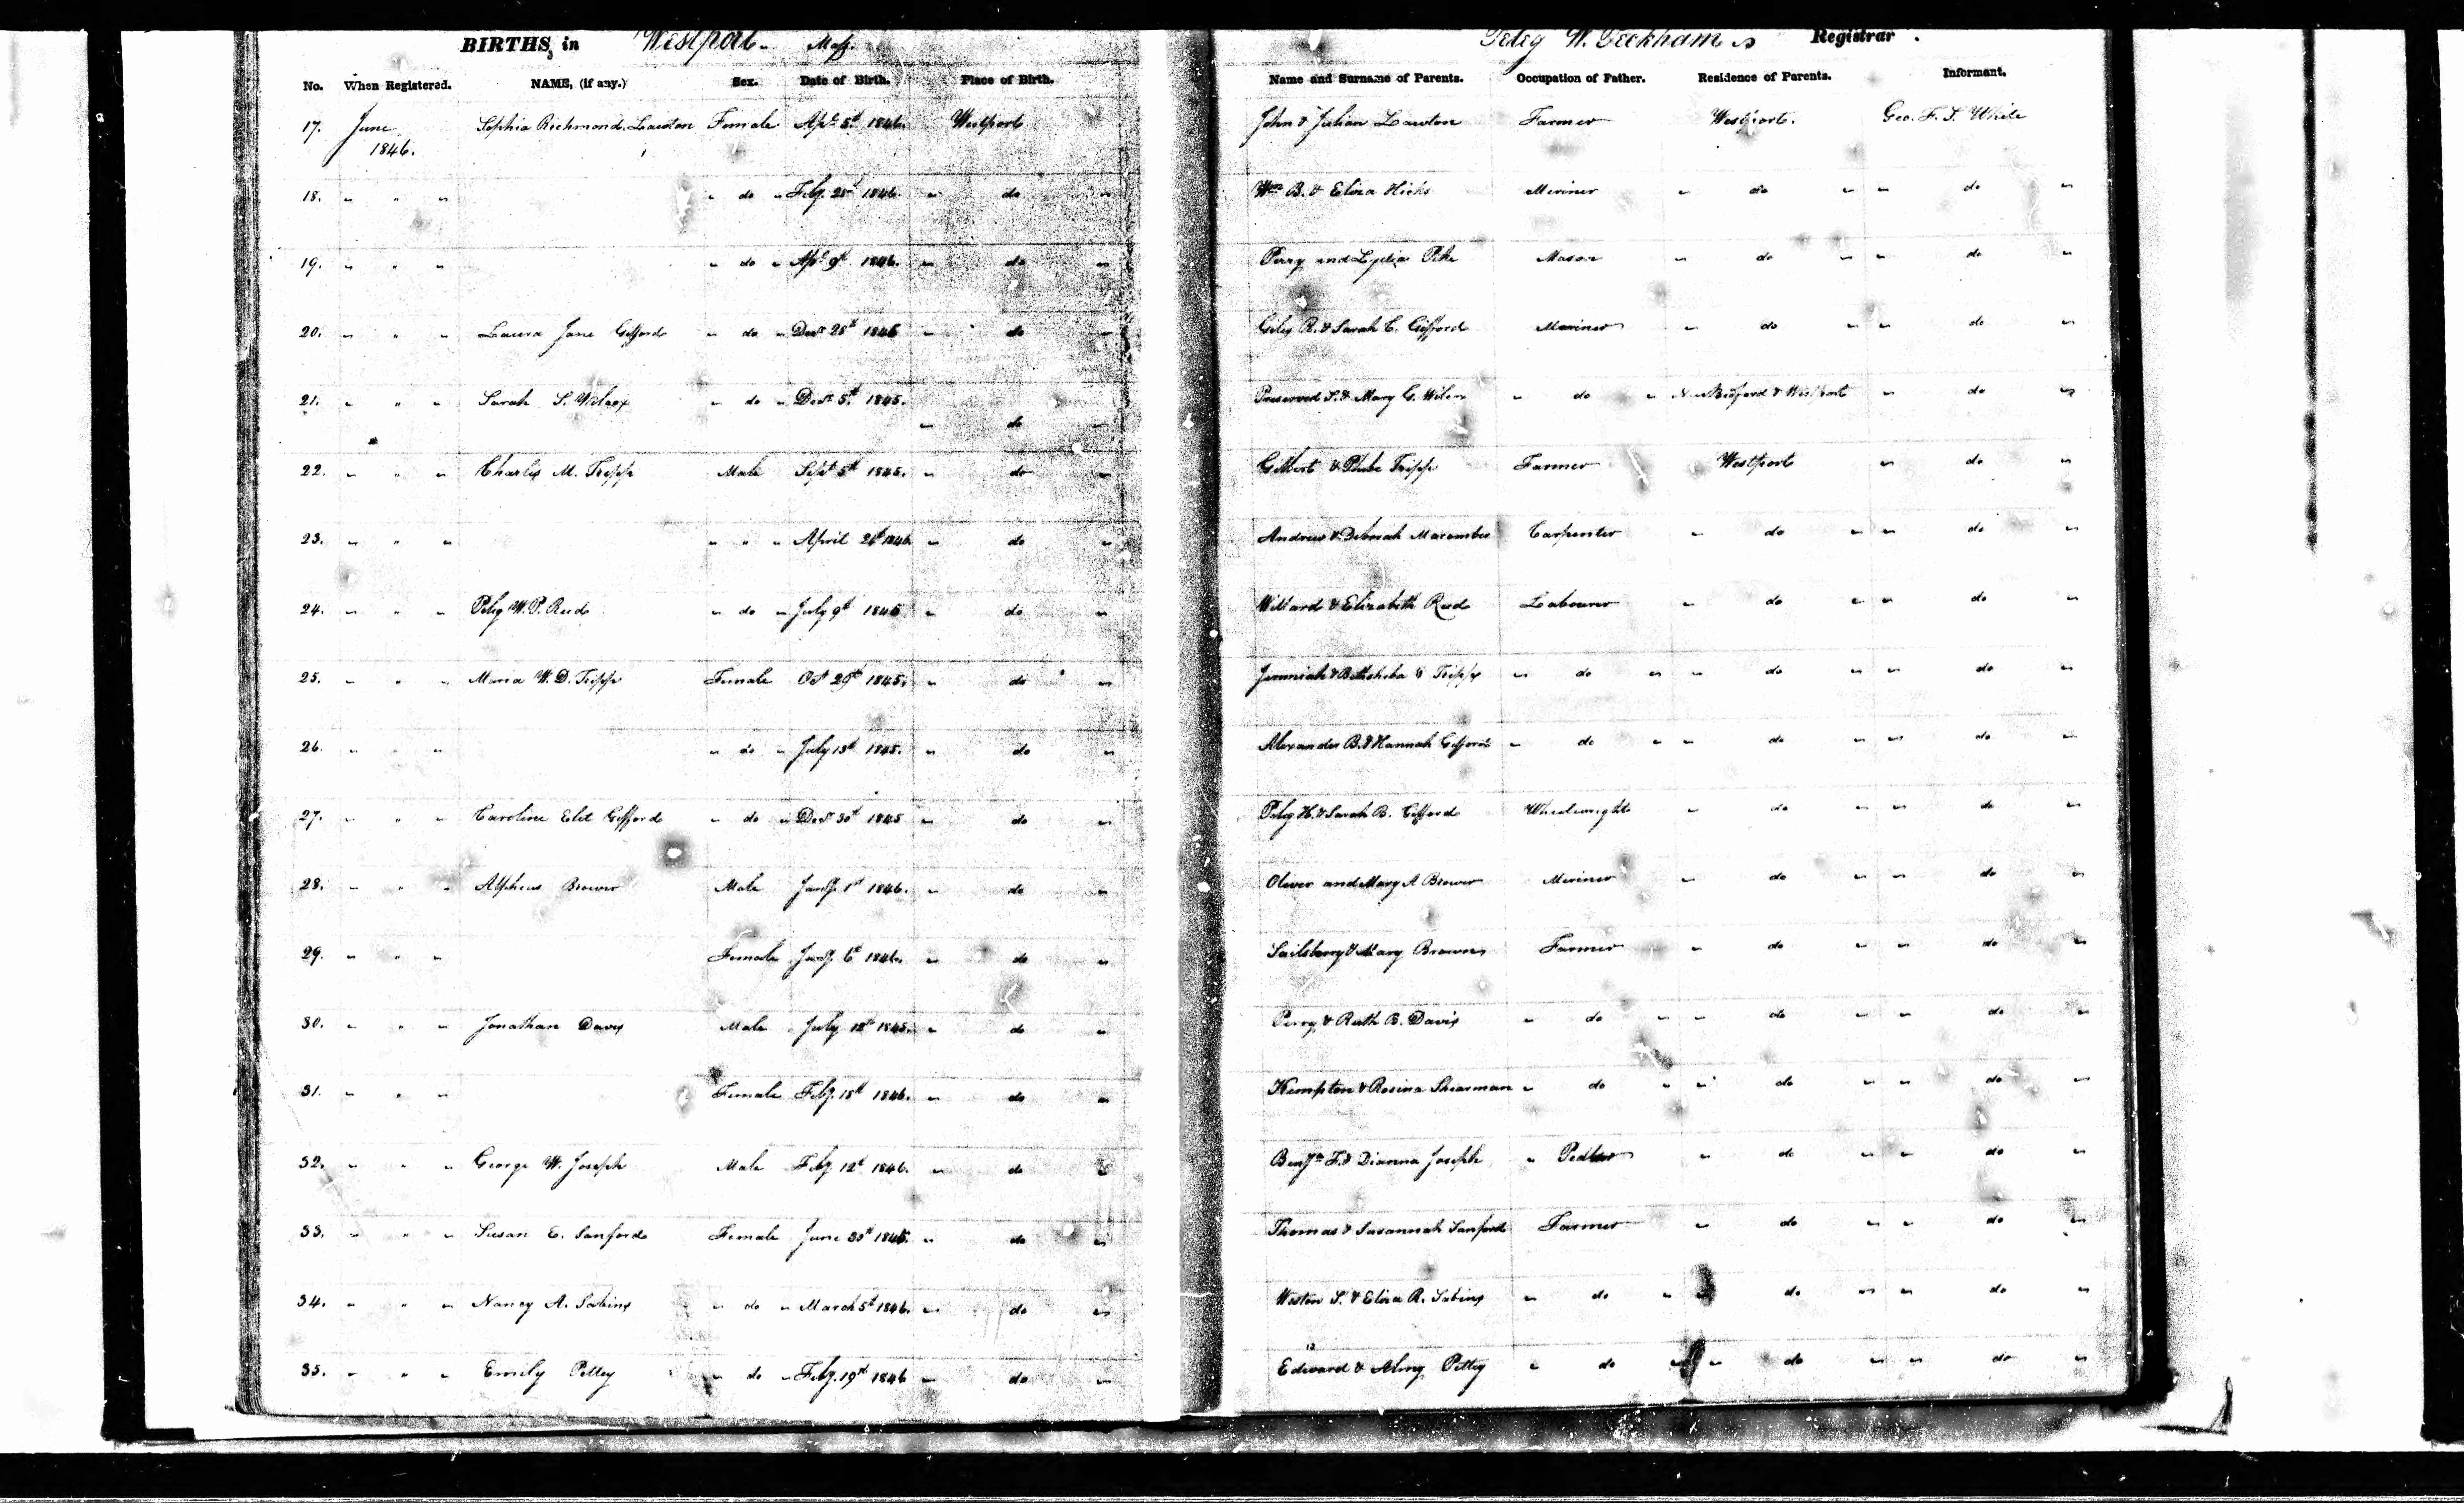 BIRTHS, in Westport Mass.
Peleg W. Peckham Registrar.
No. When Registered. NAME, (if any.) Sex. Date of Birth. Place of Birth. Name and Surname of Parents. Occupation of Father. Residence of Parents. Informant.
17. June 1846. Sophia Richmond Lawton Female Apl 5th 1846. Westport John & Julian Lawton Farmer Westport. Geo. F. S. White
18. " " " " do " Feby. 25th 1846. " do " Wm B. & Eliza Hicks Meriner " do " " do "
19. " " " " do " Apl 9th 1846. " do " Perry and Lydia Mason " do " " do "
20. " " " Laura Jane Gifford " do " Decr 25th " do " Giles R. & Sarah C. Gifford Meriner " do " " do "
21. " " " Sarah S. Wilcox " do " Decr 5th 1845. " do " Preserved S. & Mary G. " do " New Bedford & Westport " do "
22. " " " Charles M. Tripp Male Sept 5th 1845. " do " Gilbert & Phebe Tripp Farmer Westport " do "
23. " " " " " " April 1846 " do " Andrew & Deborah Macomber Carpenter " do " " do "
24. " " " Peleg W. P. Reed " do " July 9th 1845 " do " Willard & Elizabeth Reed Labourer " do " " do "
25. " " " Maria W. D. Tripp Female Oct 29th 1845. " do " Jeremiah & Bathsheba Tripp " do " " do " " do "
26. " " " " do " July 13th 1845. " do " Alexander B. & Hannah Gifford " do " " do " " do "
27. " " " Caroline Gifford " do " Decr 30th 1845 " do " Peleg H. & Sarah B. Gifford Wheelwright " do " " do "
28. " " " Alpheus Brower Male Jany. 1st 1846. " do " Oliver and Mary A Brower Meriner " do " " do "
29. " " " Female Jany. 6th 1846. " do " Sailsberry & Mary Brown Farmer " do " " do "
30. " " " Jonathan Davis Male July 1845. " do " Perry & Ruth B. Davis " do " " do " " do "
31. " " " Female Feby. 18th 1846. " do " Kempton & Rosina Shearman " do " " do " " do "
32. " " " George W. Joseph Male Feby. 12th 1846. " do " Benjn F. & Dianna Joseph " Pedler " do " " do "
33. " " " Susan E. Sanford Female June 30th 1845. " do " Thomas & Susannah Sanford Farmer " do " " do "
34. " " " Nancy A. Sabins " do " March 5th 1846. " do " Weston S. & Eliza R. Sabins " do " " do " " do "
35. " " " Emily Pettey " do " Feby. 19th 1846 " do " Edward & Almy Pettey " do " " do " " do "